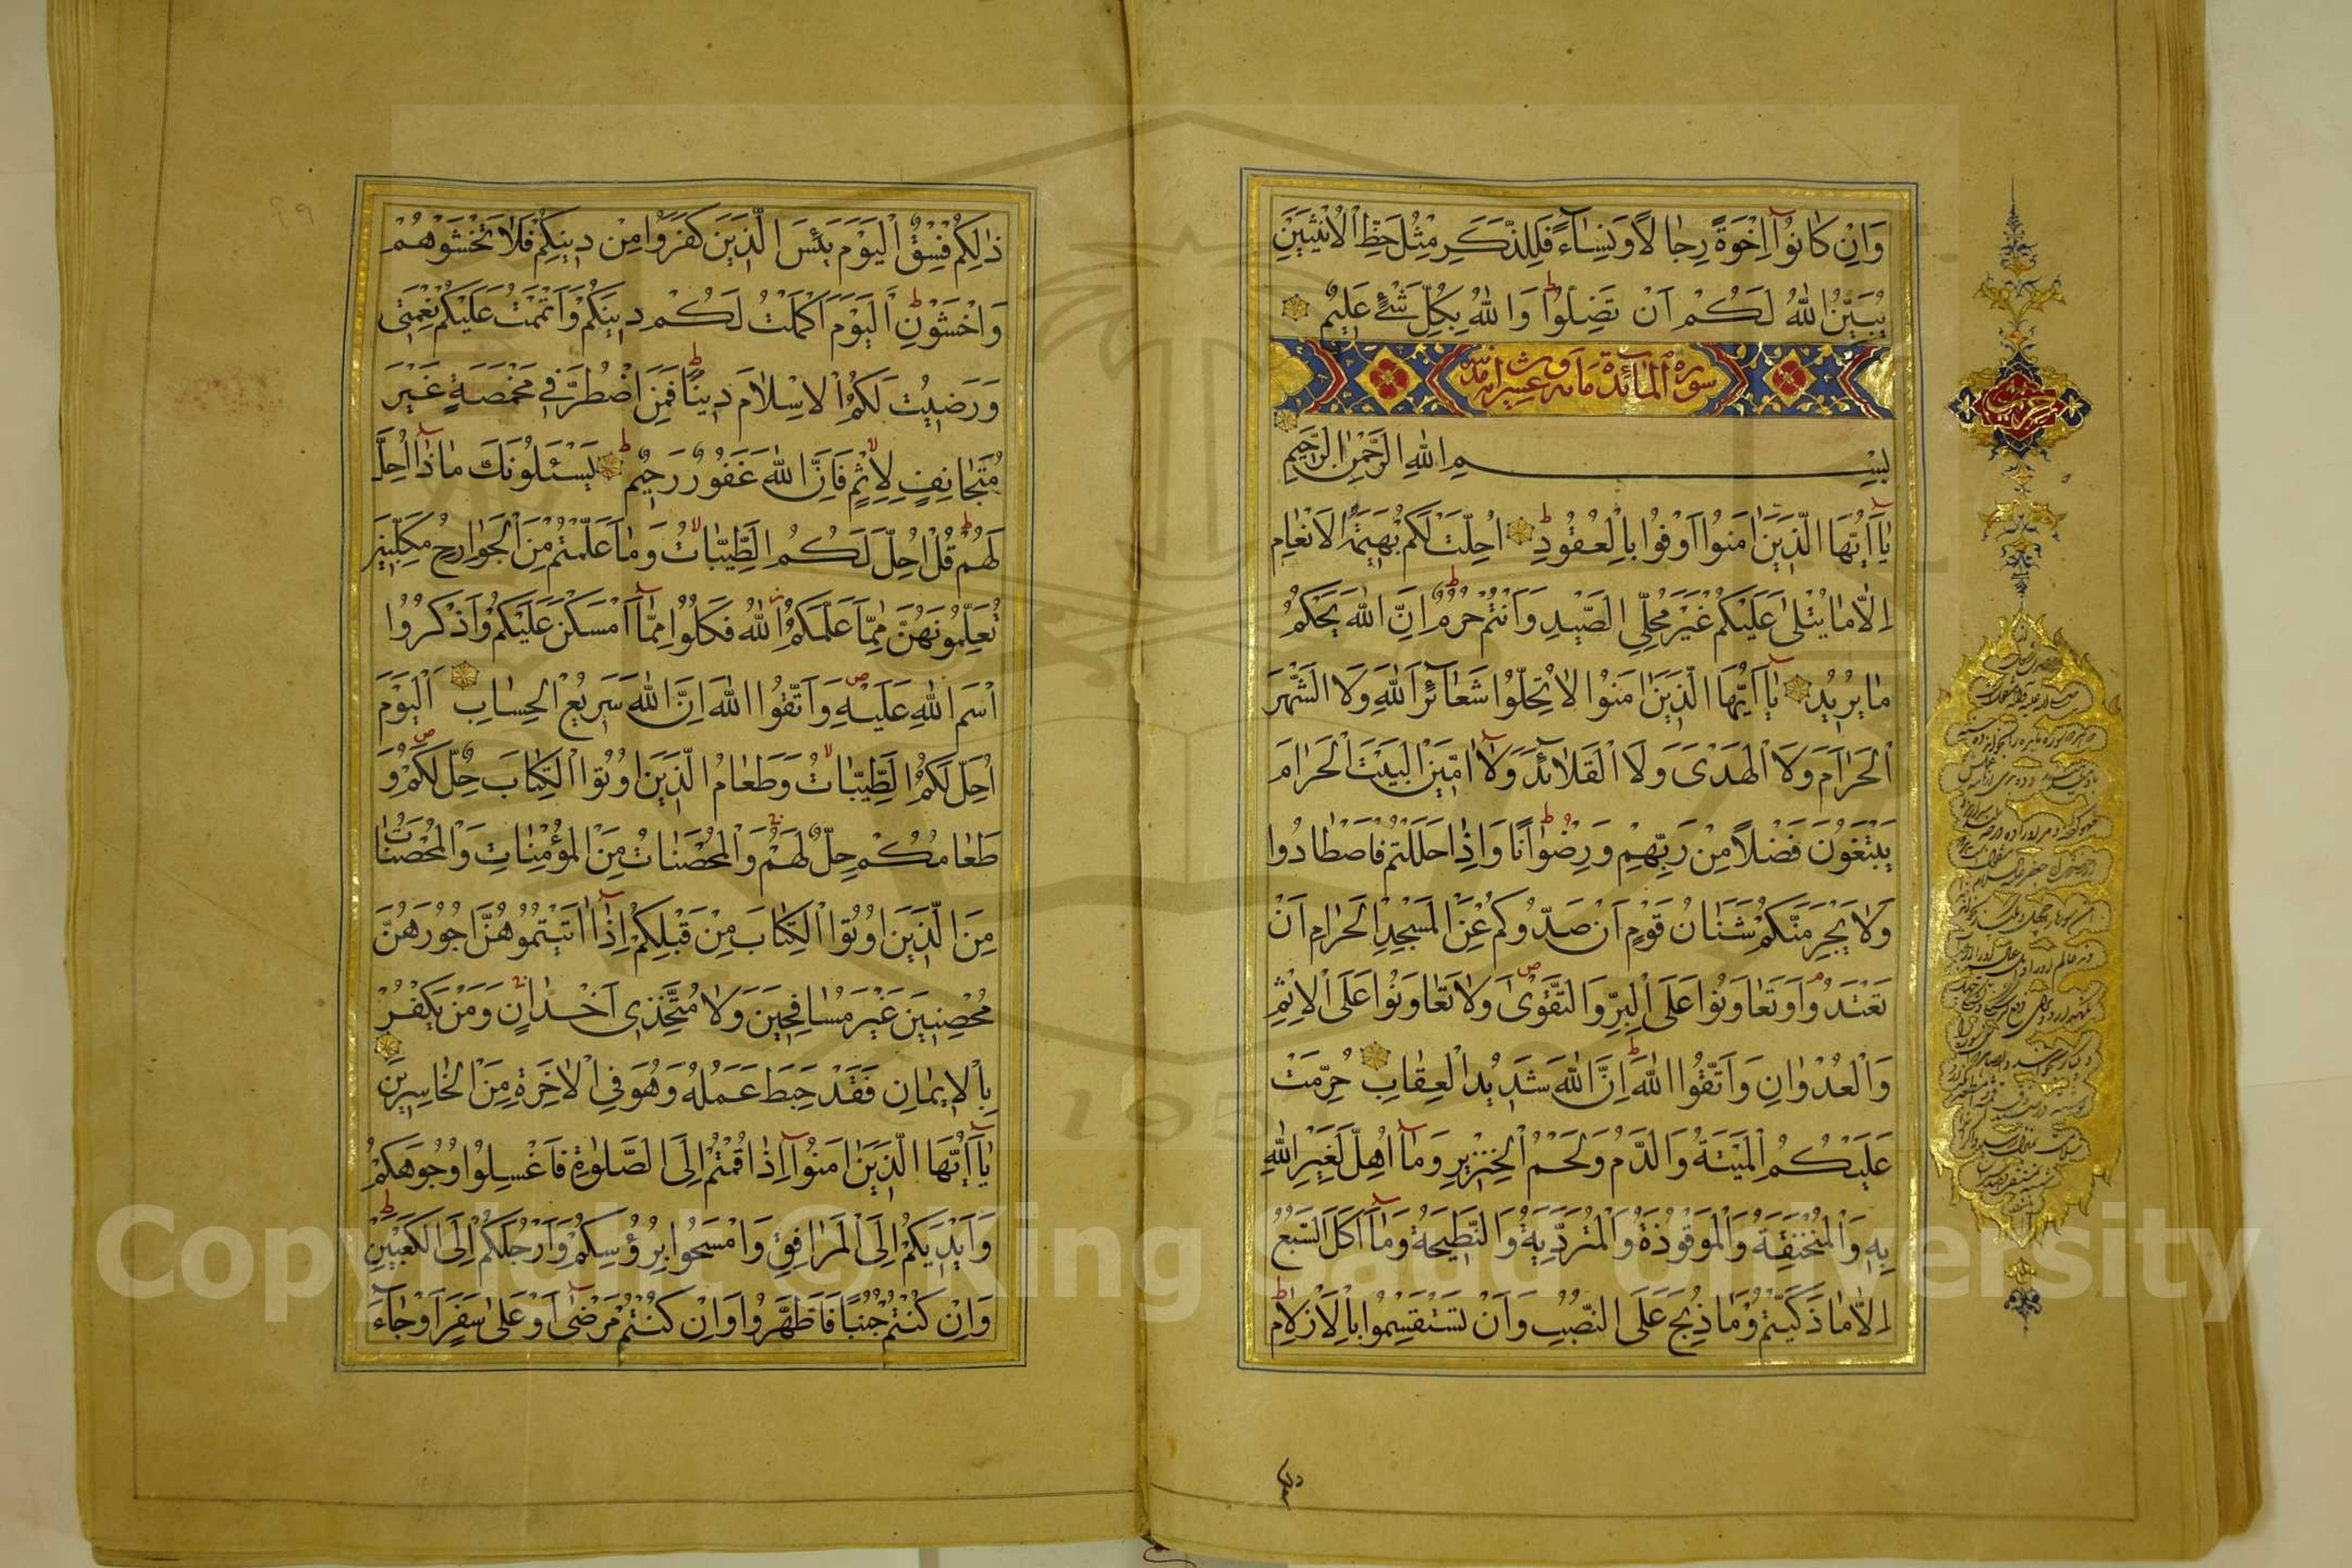 وَاِنْ كَانُوٓا اِخْوَةً رِجَالًا وَنِسَآءً فَلِلذَّكَرِ مِثْلُ حَظِّ الْاُنْثَيَيْنِ
يُبَيِّنُ اللّٰهُ لَكُمْ اَنْ تَضِلُّوا وَاللّٰهُ بِكُلِّ شَيْءٍ عَلِيمٌ
سورة المائدة مائة وعشر
بِسْمِ اللّٰهِ الرَّحْمٰنِ الرَّحِيمِ
يَآ اَيُّهَا الَّذِينَ اٰمَنُوا اَوْفُوا بِالْعُقُودِ اُحِلَّتْ لَكُمْ بَهِيمَةُ الْاَنْعَامِ
اِلَّا مَا يُتْلٰى عَلَيْكُمْ غَيْرَ مُحِلِّي الصَّيْدِ وَاَنْتُمْ حُرُمٌ اِنَّ اللّٰهَ يَحْكُمُ
مَا يُرِيدُ يَآ اَيُّهَا الَّذِينَ اٰمَنُوا لَا تُحِلُّوا شَعَآئِرَ اللّٰهِ وَلَا الشَّهْرَ
الْحَرَامَ وَلَا الْهَدْيَ وَلَا الْقَلَآئِدَ وَلَآ اٰمِّينَ الْبَيْتَ الْحَرَامَ
يَبْتَغُونَ فَضْلًا مِنْ رَبِّهِمْ وَرِضْوَانًا وَاِذَا حَلَلْتُمْ فَاصْطَادُوا
وَلَا يَجْرِمَنَّكُمْ شَنَاٰنُ قَوْمٍ اَنْ صَدُّوكُمْ عَنِ الْمَسْجِدِ الْحَرَامِ اَنْ
تَعْتَدُوا وَتَعَاوَنُوا عَلَى الْبِرِّ وَالتَّقْوٰى وَلَا تَعَاوَنُوا عَلَى الْاِثْمِ
وَالْعُدْوَانِ وَاتَّقُوا اللّٰهَ اِنَّ اللّٰهَ شَدِيدُ الْعِقَابِ حُرِّمَتْ
عَلَيْكُمُ الْمَيْتَةُ وَالدَّمُ وَلَحْمُ الْخِنْزِيرِ وَمَآ اُهِلَّ لِغَيْرِ اللّٰهِ
بِهِ وَالْمُنْخَنِقَةُ وَالْمَوْقُوذَةُ وَالْمُتَرَدِّيَةُ وَالنَّطِيحَةُ وَمَآ اَكَلَ السَّبُعُ
اِلَّا مَا ذَكَّيْتُمْ وَمَا ذُبِحَ عَلَى النُّصُبِ وَاَنْ تَسْتَقْسِمُوا بِالْاَزْلَامِ
ذلكم
ذٰلِكُمْ فِسْقٌ اَلْيَوْمَ يَئِسَ الَّذِينَ كَفَرُوا مِنْ دِينِكُمْ فَلَا تَخْشَوْهُمْ
وَاخْشَوْنِ اَلْيَوْمَ اَكْمَلْتُ لَكُمْ دِينَكُمْ وَاَتْمَمْتُ عَلَيْكُمْ نِعْمَتِي
وَرَضِيتُ لَكُمُ الْاِسْلَامَ دِينًا فَمَنِ اضْطُرَّ فِي مَخْمَصَةٍ غَيْرَ
مُتَجَانِفٍ لِاِثْمٍ فَاِنَّ اللّٰهَ غَفُورٌ رَحِيمٌ يَسْئَلُونَكَ مَاذَآ اُحِلَّ
لَهُمْ قُلْ اُحِلَّ لَكُمُ الطَّيِّبَاتُ وَمَا عَلَّمْتُمْ مِنَ الْجَوَارِحِ مُكَلِّبِينَ
تُعَلِّمُونَهُنَّ مِمَّا عَلَّمَكُمُ اللّٰهُ فَكُلُوا مِمَّآ اَمْسَكْنَ عَلَيْكُمْ وَاذْكُرُوا
اسْمَ اللّٰهِ عَلَيْهِ وَاتَّقُوا اللّٰهَ اِنَّ اللّٰهَ سَرِيعُ الْحِسَابِ اَلْيَوْمَ
اُحِلَّ لَكُمُ الطَّيِّبَاتُ وَطَعَامُ الَّذِينَ اُوتُوا الْكِتَابَ حِلٌّ لَكُمْ وَ
طَعَامُكُمْ حِلٌّ لَهُمْ وَالْمُحْصَنَاتُ مِنَ الْمُؤْمِنَاتِ وَالْمُحْصَنَاتُ
مِنَ الَّذِينَ اُوتُوا الْكِتَابَ مِنْ قَبْلِكُمْ اِذَآ اٰتَيْتُمُوهُنَّ اُجُورَهُنَّ
مُحْصِنِينَ غَيْرَ مُسَافِحِينَ وَلَا مُتَّخِذِي اَخْدَانٍ وَمَنْ يَكْفُرْ
بِالْاِيمَانِ فَقَدْ حَبِطَ عَمَلُهُ وَهُوَ فِي الْاٰخِرَةِ مِنَ الْخَاسِرِينَ
يَآ اَيُّهَا الَّذِينَ اٰمَنُوآ اِذَا قُمْتُمْ اِلَى الصَّلٰوةِ فَاغْسِلُوا وُجُوهَكُمْ
وَاَيْدِيَكُمْ اِلَى الْمَرَافِقِ وَامْسَحُوا بِرُؤُسِكُمْ وَاَرْجُلَكُمْ اِلَى الْكَعْبَيْنِ
وَاِنْ كُنْتُمْ جُنُبًا فَاطَّهَّرُوا وَاِنْ كُنْتُمْ مَرْضٰى اَوْ عَلٰى سَفَرٍ اَوْ جَآءَ
Copyright © King Saud University
195